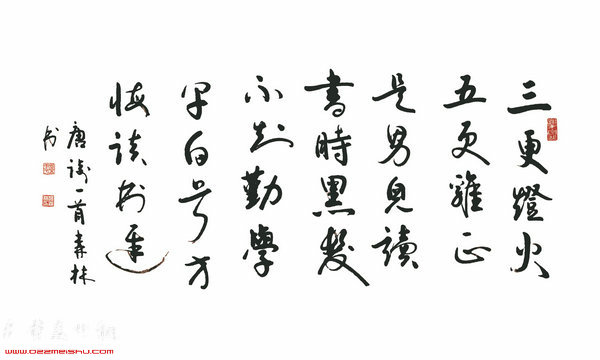 三更燈火
五更雞正
是男兒讀
書時黑髮
不知勤學
早白首方
悔讀书遲
唐詩一首 林
书
www.022meishu.com